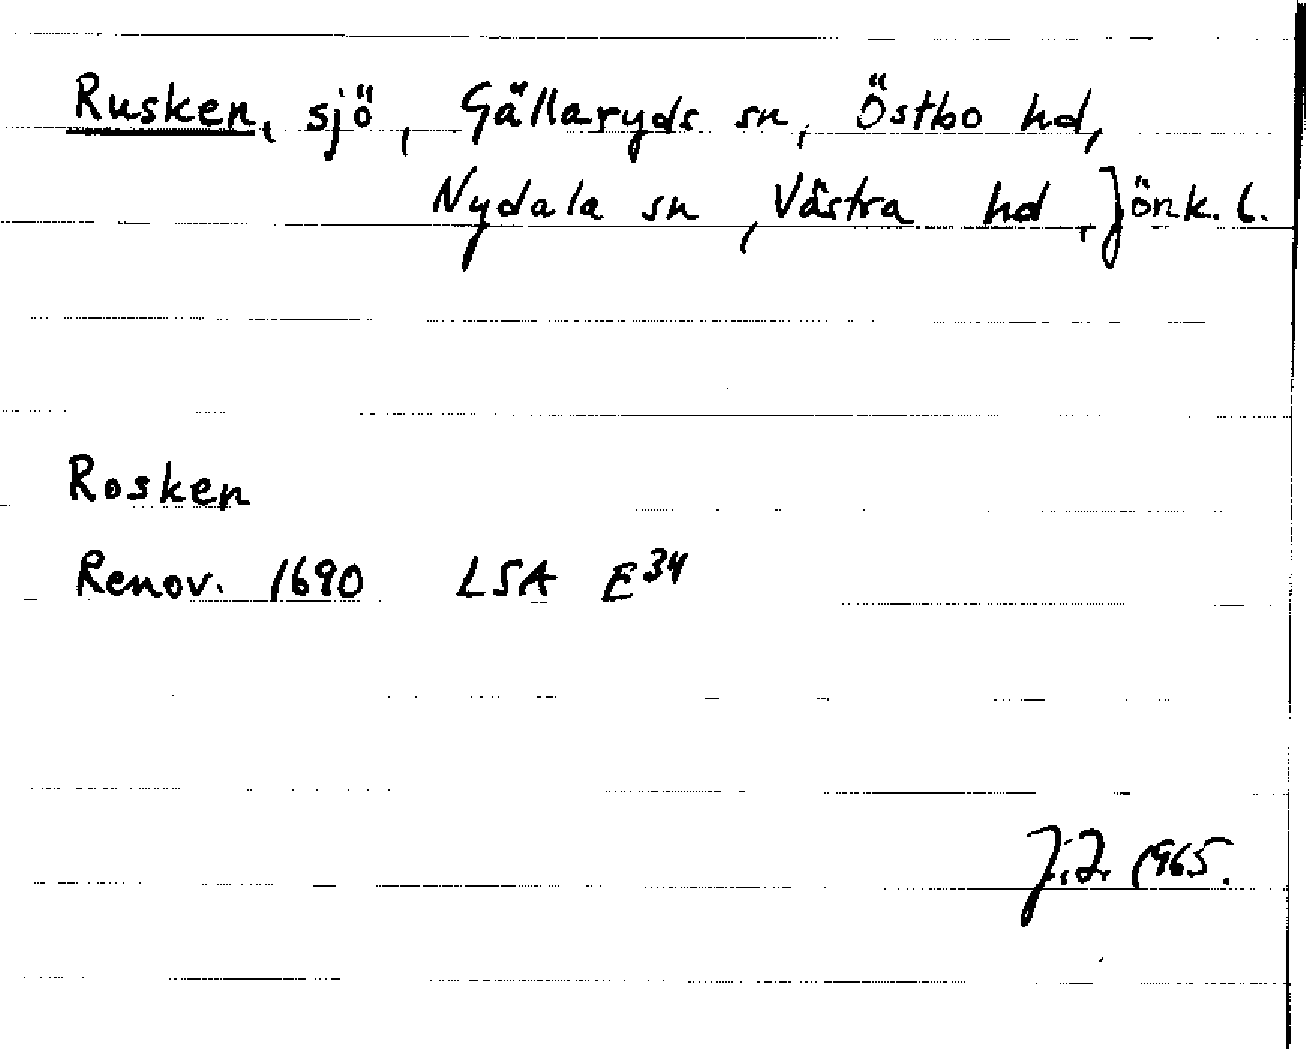 Rusken, sjö, Gällaryds sn, Östbo hd,
Nydala sn, Västra hd, Jönk. l.
Rosken
Renov. 1690 LSA E34
J.I. 1965.